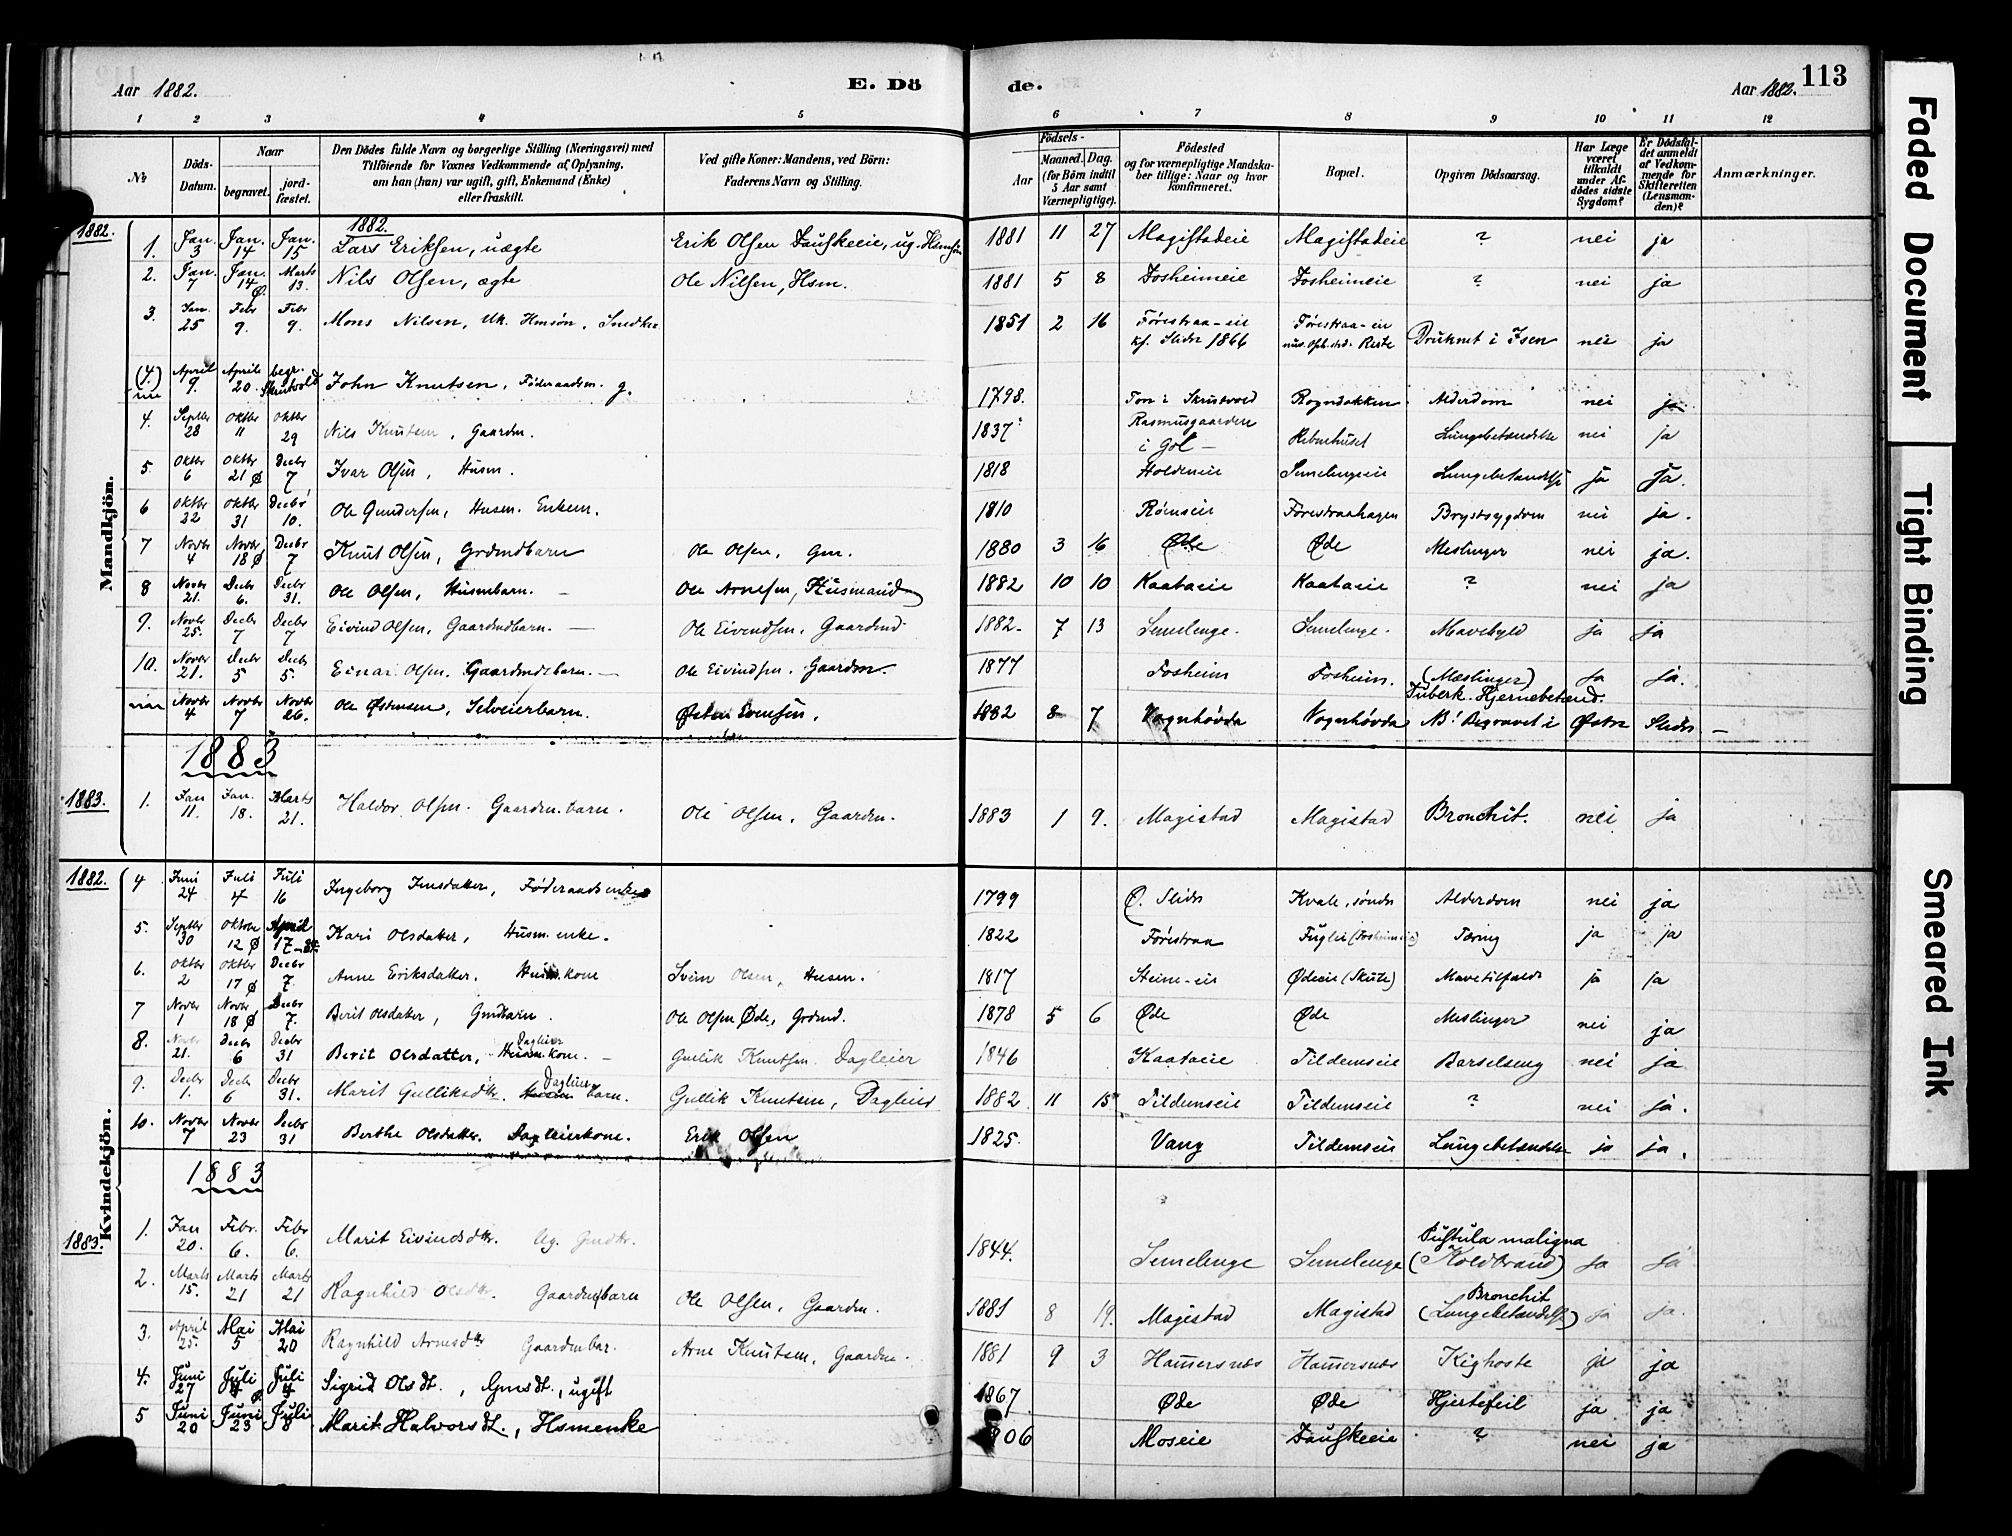 Aar 1882. E. Dö de. Aar 1882. 113
1 2 3 4 5 6 7 8 9 10 11 12
№ Döds-Datum. Naar begravet. jordfæstet. Den Dödes fulde Navn og borgerlige Stilling (Næringsvei) med Tilföiende for Voxnes Vedkommende af Oplysning, om han (hun) var ugift, gift, Enkemand (Enke) eller fraskilt. Ved gifte Koner: Mandens, ved Börn: Faderens Navn og Stilling. Födsels- Aar Maaned. Dag. (for Börn indtil 5 Aar samt Værnepligtige). Födested og for værnepligtige Mandskaber tillige: Naar og hvor konfirmeret. Bopæl. Opgiven Dödsaarsag. Har Læge været tilkaldt under Afdödes sidste Sygdom? Er Dödsfaldet anmeldt af Vedkommende for Skifteretten (Lensmanden)? Anmærkninger.
Mandkjön.
1882. 1882.
1. Jan. 3 Jan. 14 Jan. 15 Lars Eriksen, uægte Erik Olsen Dauskeeie, ug. 1881 11 27 Magistadeie Magistadeie ? nei ja
2. Jan. 7 Jan. 14 Ø. Marts 13. Nils Olsen, ægte Ole Nilsen, Hsm. 1881 5 8 Fosheimeie Fosheimeie ? nei ja
3. Jan. 25 Febr 9. Febr 9. Mons Nilsen, Uk. Hmsøn, Snedker 1851 2 16 Førestraa-eie kf. Slidre 1866 Førestraa-eie Druknet i Isen nei ja
(4.) April 9. April 20. begr. Skrutvold John Knutsen, Føderaadsm. g. 1798. Ton i Skrutvold Rogndokken Alderdom nei ja
4. Septbr 28 Oktbr 11 Oktbr 29 Nils Knutsen, Gaardm. 1837 Rasmusgaarden i Gol - Lungebetændelse nei ja
5. Oktbr 6 Oktbr 21 Ø Decbr 7 Ivar Olsen, Husm. 1818 Holdeneie Semelengeie Lungebetændelse ja ja.
6 Oktbr 22 Oktbr 31 Decbr 10. Ole Gundersen, Husm. Enkem. 1810 Rømseie Førestraahagen Brystsygdom nei ja.
7 Novbr 4 Novbr 18 Ø Decbr 7 Knut Olsen, Grdmdbarn Ole Olsen, Gm. 1880 3 16 Øde Øde Meslinger nei ja.
8 Novbr 21. Decbr 6. Decbr 31. Ole Olsen, Husmbarn. - Ole Arnesen, Husmand 1882 10 10 Kaataeie Kaataeie ? nei ja
9. Novbr 25. Decbr 7 Decbr 7 Eivind Olsen, Gaardmdbarn. - Ole Eivendsen, Gaardmd 1882- 7 13 Semelenge. Semelenge. Mavebyld ja ja
10. Novbr 21. Decbr 5 Decbr 5. Einar Olsen. Gaardmdsbarn. - Ole Eivindsen. Gaardm. 1877 Fosheim Fosheim. (Meslinger) Tuberk. Hjernebetænd. ja ja.
Novbr 4 Novbr 7 Novbr 26. Ole Østensen, Selveierbarn. Østen Evensen, 1882 8 7 Vognhövda Vognhövda NB! Begravet i Østre Slidre -
1883
1883. 1. Jan 11. Jan. 18. Marts 21. Haldor Olsen. Gaardm. barn. Ole Olsen, Gaardm. 1883 1 9. Magistad Magistad Bronchit. nei ja
Kvindekjön.
1882. 4 Juni 24 Juli 4 Juli 16 Ingeborg Jensdatter, Føderaadsenke 1799 Ø. Slidre Kvale, søndre Alderdom nei ja
5. Septbr 30 Oktobr 12 Ø April 17 Kari Olsdatter, Husm. enke. 1822 Førestraa Fuglie (Fosheimeie) Tæring ja ja
6. Oktbr 2 Oktbr 17 Ø Decbr 7. Anne Eriksdatter. Husm. kone Svein Olsen, Husm. 1817 Steine-eie Ødeeie (Skute) Mavetilfælde ja ja
7 Novbr 1 Novbr 18 Ø Decbr 7. Berit Olsdatter, Gmdbarn. Ole Olsen Øde, Grdmd. 1878 5 6 Øde Øde Meslinger nei ja
8. Novbr 21. Decbr 6 Decbr 31 Berit Olsdatter, Husm. Dagleier kone. - Gullik Knutsen. Dagleier 1846 Kaataeie Tildemseie Barselseng nei ja
9. Decbr 1. Decb 6 Decbr 31. Marit Gulliksdtr. Dagleier barn. Gullik Knutsen, Dagleier 1882 11 15 Tildemseie Tildemseie ? nei ja.
10. Novbr 7 Novbr 23 Decbr 31 Berthe Olsdatter. Dagleierkone. Erik Olsen 1825. Vang Tildemseie Lungebetændelse ja ja.
1883
1883. 1. Jan 20. Febr. 6. Febr 6. Marit Eivindsdtr. Ug. Gmdtr. 1844. Semelenge Semelenge Pustula maligna (Koldbrand) ja ja
2. Marts 15. Marts 21 Marts 21 Ragnhild Olsdtr. Gaardmbarn Ole Olsen, Gaardm. 1881 8 19. Magistad Magistad Bronchit (Lungebetændelse) ja ja.
3. April 25. Mai 5 Mai 20 Ragnhild Arnesdtr Gaardmbar. Arne Knutsen, Gaardm. 1881 9 3 Hamersnæs Hamersnæs Kighoste ja ja
4. Juni 27 Juli 4 Ø. Juli 4 Sigrid Olsdt., Gmsdt., ugift 1867 Øde Øde Hjertefeil ja ja
5 Juni 20 Juni 23 Juli 8 Marit Halvorsdt., Hsmenke 806 Moseie Dauskeeie ? nei ja
Faded Document
Tight Binding
Smeared Ink